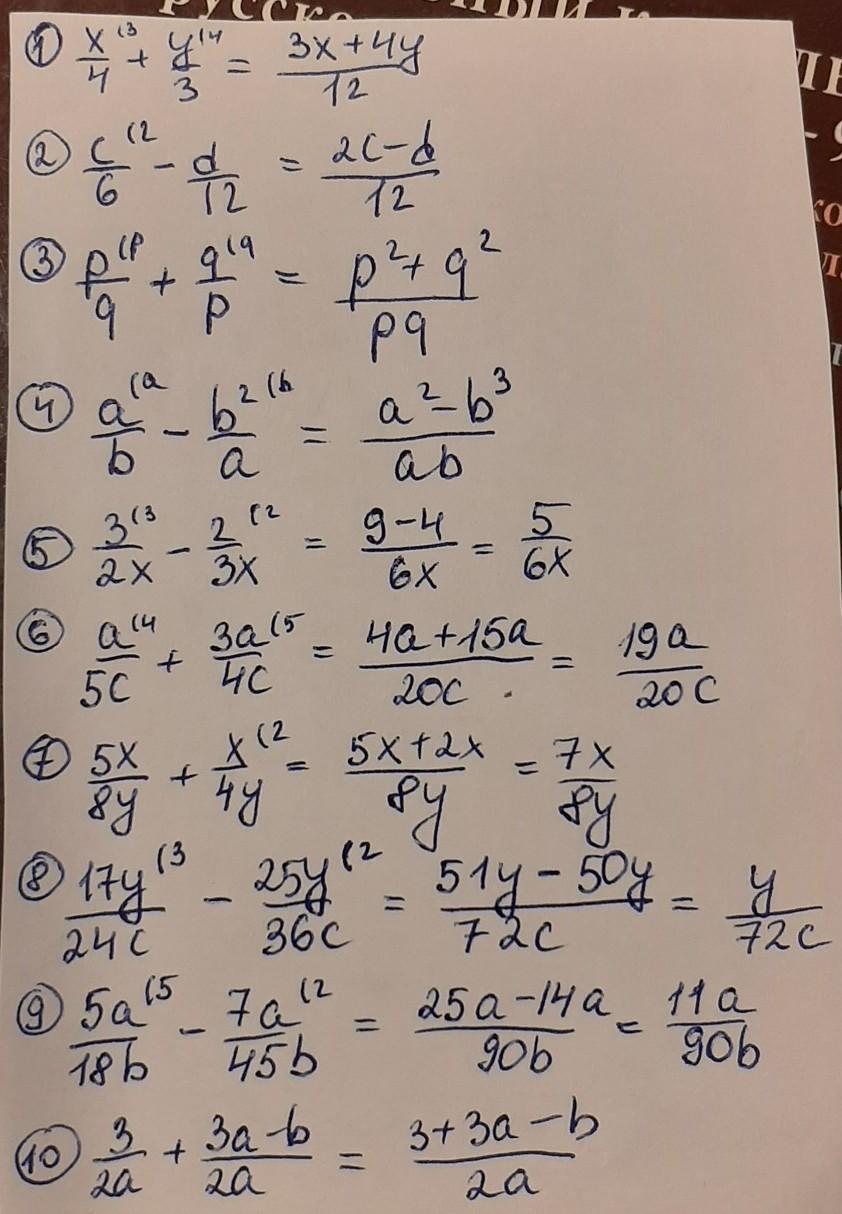 русско
ный к
ЛЕ
- 9
ко
① x/4 (3 + y/3 (4 = (3x+4y)/12
② c/6 (2 - d/12 = (2c-d)/12
③ p/q (p + q/p (q = (p²+q²)/pq
④ a/b (a - b²/a (b = (a²-b³)/ab
⑤ 3/2x (3 - 2/3x (2 = (9-4)/6x = 5/6x
⑥ a/5c (4 + 3a/4c (5 = (4a+15a)/20c = 19a/20c
⑦ 5x/8y + x/4y (2 = (5x+2x)/8y = 7x/8y
⑧ 17y/24c (3 - 25y/36c (2 = (51y-50y)/72c = y/72c
⑨ 5a/18b (5 - 7a/45b (2 = (25a-14a)/90b = 11a/90b
⑩ 3/2a + (3a-b)/2a = (3+3a-b)/2a